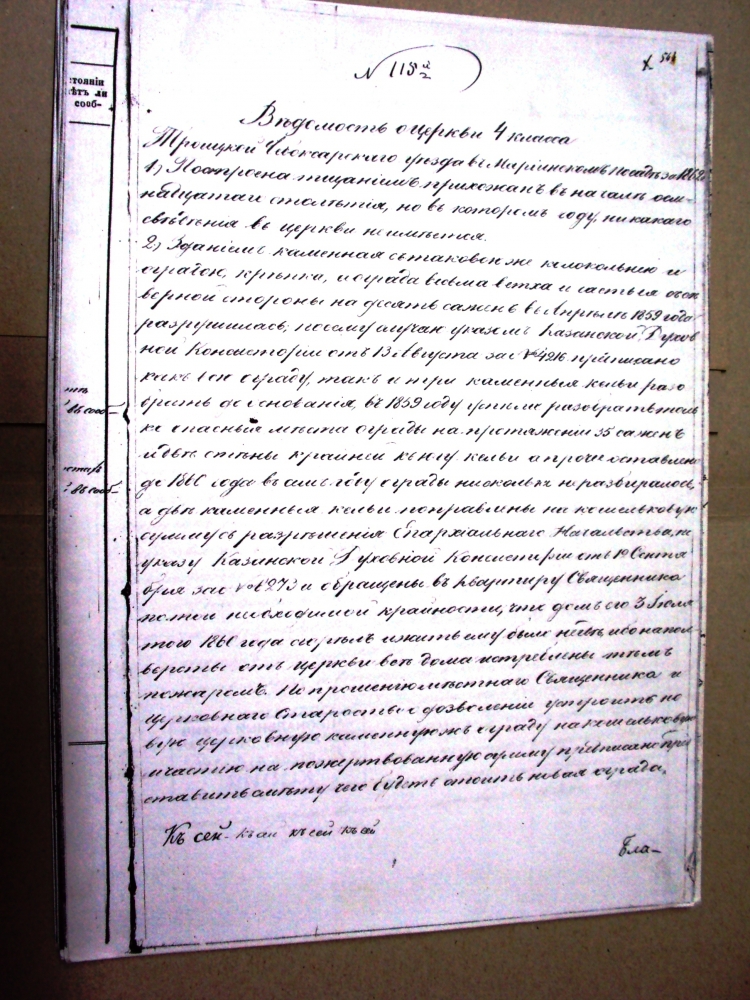 стоянии
ѣтъ ли
сооб-
№ 115 й
2
Вѣдомость о церкви 4 класса
Троицкой Чебоксарскаго уѣзда въ Марiинскомъ посадѣ за 1862
1) Построена тщанiемъ прихожанъ въ началѣ осм-
надцатаго столѣтiя, но въ которомъ году, никакаго
свѣденiя въ церкви не имѣется.
2) Зданiемъ каменная съ таковою же колокольнею и
оградою, крѣпка, и ограда весьма ветха и частью съ сѣ-
верной стороны на десять саженъ въ Апрѣлѣ 1859 года
разрушилась; по сему случаю указомъ Казанской Духов
ной Консисторiи отъ 13 Августа за № 4216 предписано
какъ всю ограду, такъ и три каменныя кельи разо
брать до основанiя, въ 1859 году успели разобрать толь
ко опасныя мѣста ограды на протяженiи 35 саженъ
и двѣ стѣны крайней къ югу кельи а прочее оставлено
до 1860 года въ ономъ году ограды нисколько не разбиралось,
а двѣ каменныя кельи поправлены на кошельковую
сумму съ разрѣшенiя Епархiальнаго Начальства, по
указу Казанской Духовной Консисторiи отъ 19 Сентя
бря за № 6273 и обращены въ квартиру Священника
по той необходимой крайности, что домъ его 3 Iюля
того 1860 года сгорѣлъ и жить ему было негдѣ ибо на пол
версты отъ церкви всѣ дома истреблены тѣмъ
пожаромъ. По прошенiю мѣстнаго Священника и
церковнаго Старосты о дозволенiи устроить но
вую церковную каменную ограду на кошельковую
и частiю на пожертвованную сумму предписано пред
ставить смѣту чего будетъ стоить новая ограда.
Къ сей къ сей къ сей къ сей
Бла-